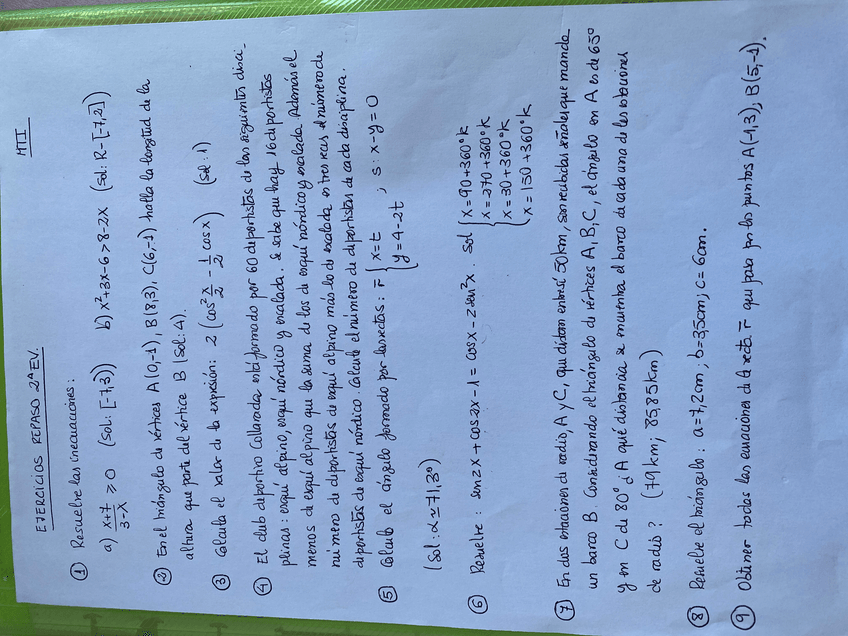 EJERCICIOS REPASO 2ª EV. MTI
① Resuelve las inecuaciones:
a) x+7/3-x ≥ 0 (Sol: [-7,3)) b) x²+3x-6>8-2x (Sol: R-[-7,2])
② En el triángulo de vértices A(0,-1), B(8,3), C(6,-1) halla la longitud de la
altura que parte del vértice B (Sol: 4).
③ Calcula el valor de la expresión: 2(cos² x/2 - 1/2 cos x) (sol: 1)
④ El club deportivo Collarada está formado por 60 deportistas de las siguientes disci-
plinas: esquí alpino, esquí nórdico y escalada. Se sabe que hay 16 deportistas
menos de esquí alpino que la suma de los de esquí nórdico y escalada. Además el
número de deportistas de esquí alpino más lo de escalada es tres veces el número de
deportistas de esquí nórdico. Calcula el número de deportistas de cada disciplina.
⑤ Calcula el ángulo formado por las rectas: r { x=t y=4-2t ; s: x-y=0
(Sol: α≃71'13°)
⑥ Resuelve: sen2x + cos2x - 1 = cosx - 2sen²x. Sol { x=90+360°K
x=270+360°K
x=30+360°K
x=150+360°K
⑦ En dos estaciones de radio, A y C, que distan entre sí 50km, son recibidas señales que manda
un barco B. Considerando el triángulo de vértices A, B, C, el ángulo en A es de 65º
y en C de 80º ¿A qué distancia se encuentra el barco de cada una de las estaciones
de radio? (79km; 85,85km)
⑧ Resuelve el triángulo: a=7,2cm; b=3,5cm; c=6cm.
⑨ Obtener todas las ecuaciones de la recta r que pasa por los puntos A(-1,3), B(5,-1).